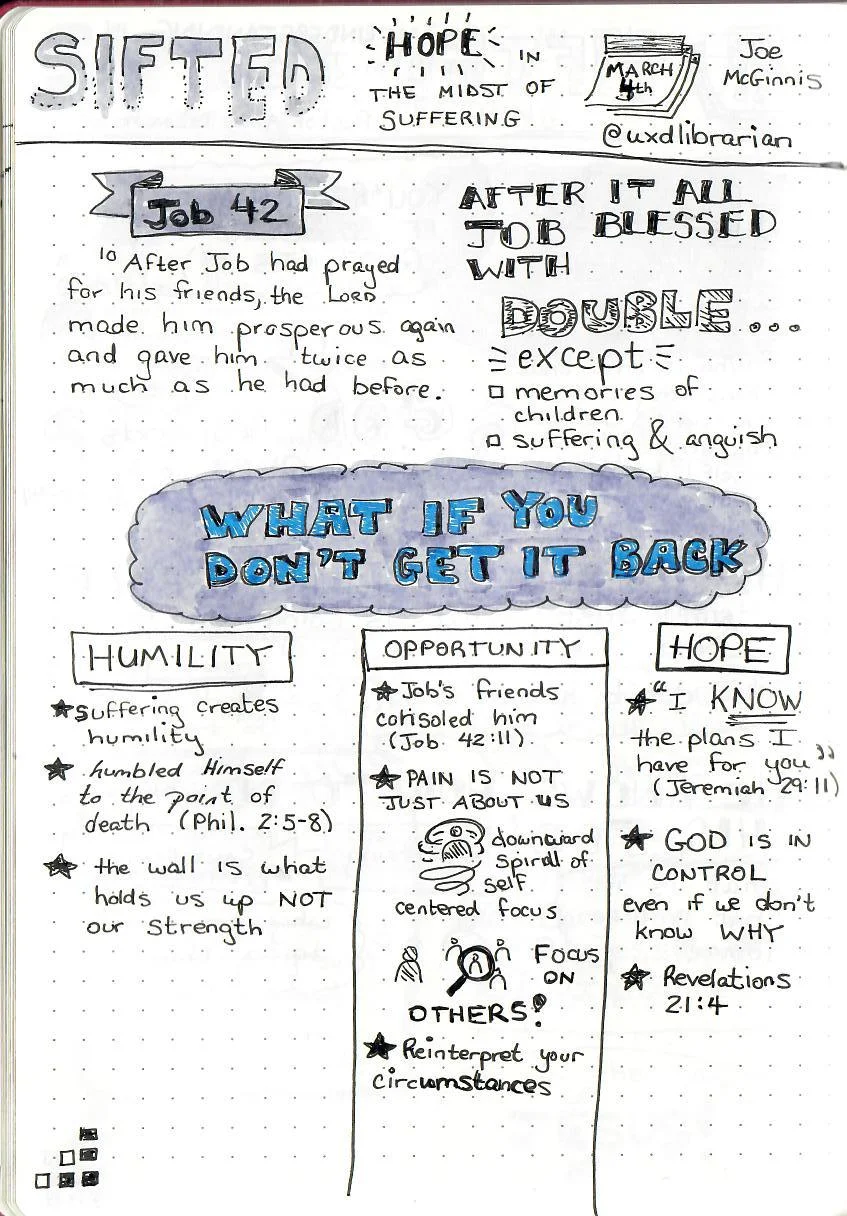 SIFTED
HOPE IN
THE MIDST OF
SUFFERING
MARCH
4th
Joe
McGinnis
@uxdlibrarian
Job 42
10 After Job had prayed
for his friends, the LORD
made him prosperous again
and gave him twice as
much as he had before.
AFTER IT ALL
JOB BLESSED
WITH
DOUBLE...
except
memories of
children
suffering & anguish
WHAT IF YOU
DON'T GET IT BACK
HUMILITY
suffering creates
humility
humbled Himself
to the point of
death (Phil. 2:5-8)
the wall is what
holds us up NOT
our Strength
OPPORTUNITY
Job's friends
consoled him
(Job 42:11)
PAIN IS NOT
JUST ABOUT US
downward
spirall of
self
centered focus
FOCUS
ON
OTHERS!
Reinterpret your
circumstances
HOPE
"I KNOW
the plans I
have for you"
(Jeremiah 29:11)
GOD IS IN
CONTROL
even if we don't
know WHY
Revelations
21:4